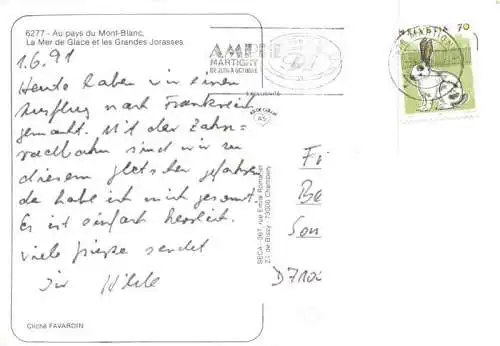 6277 - Au pays du Mont-Blanc,
La Mer de Glace et les Grandes Jorasses
1.6.91
Heute haben wir einen
Ausflug nach Frankreich
gemacht. Mit der Zahn-
radbahn sind wir zu
diesem gletscher gefahren
da habe ich mich gesonnt.
Es ist einfach herrlich.
viele grüsse sendet
70
MARTIGNY
DE JUIN A OCTOBRE
SECA - 067, rue Emile Romanet
Z.I. de Bissy - 73000 Chambéry
Be
Son
D7100
Cliché FAVARDIN